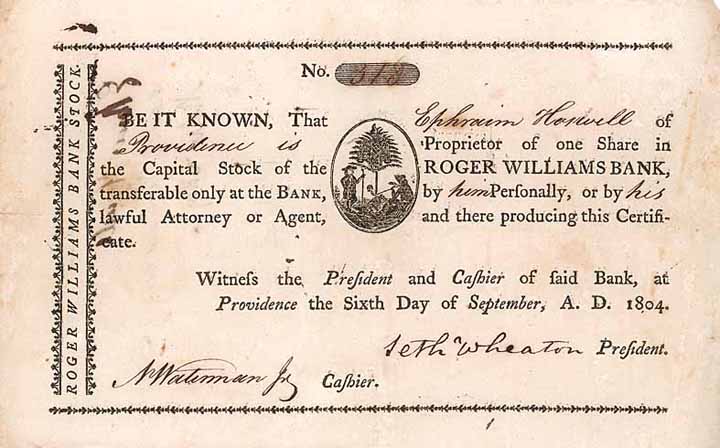 ROGER WILLIAMS BANK STOCK.
No. 
BE IT KNOWN, That Ephraim of
Providence is Proprietor of one Share in
the Capital Stock of the ROGER WILLIAMS BANK,
transferable only at the BANK, by him Personally, or by his
lawful Attorney or Agent, and there producing this Certifi-
cate.
Witneſs the Preſident and Caſhier of ſaid Bank, at
Providence the Sixth Day of September, A. D. 1804.
Seth Wheaton Preſident.
N Waterman Jr Caſhier.